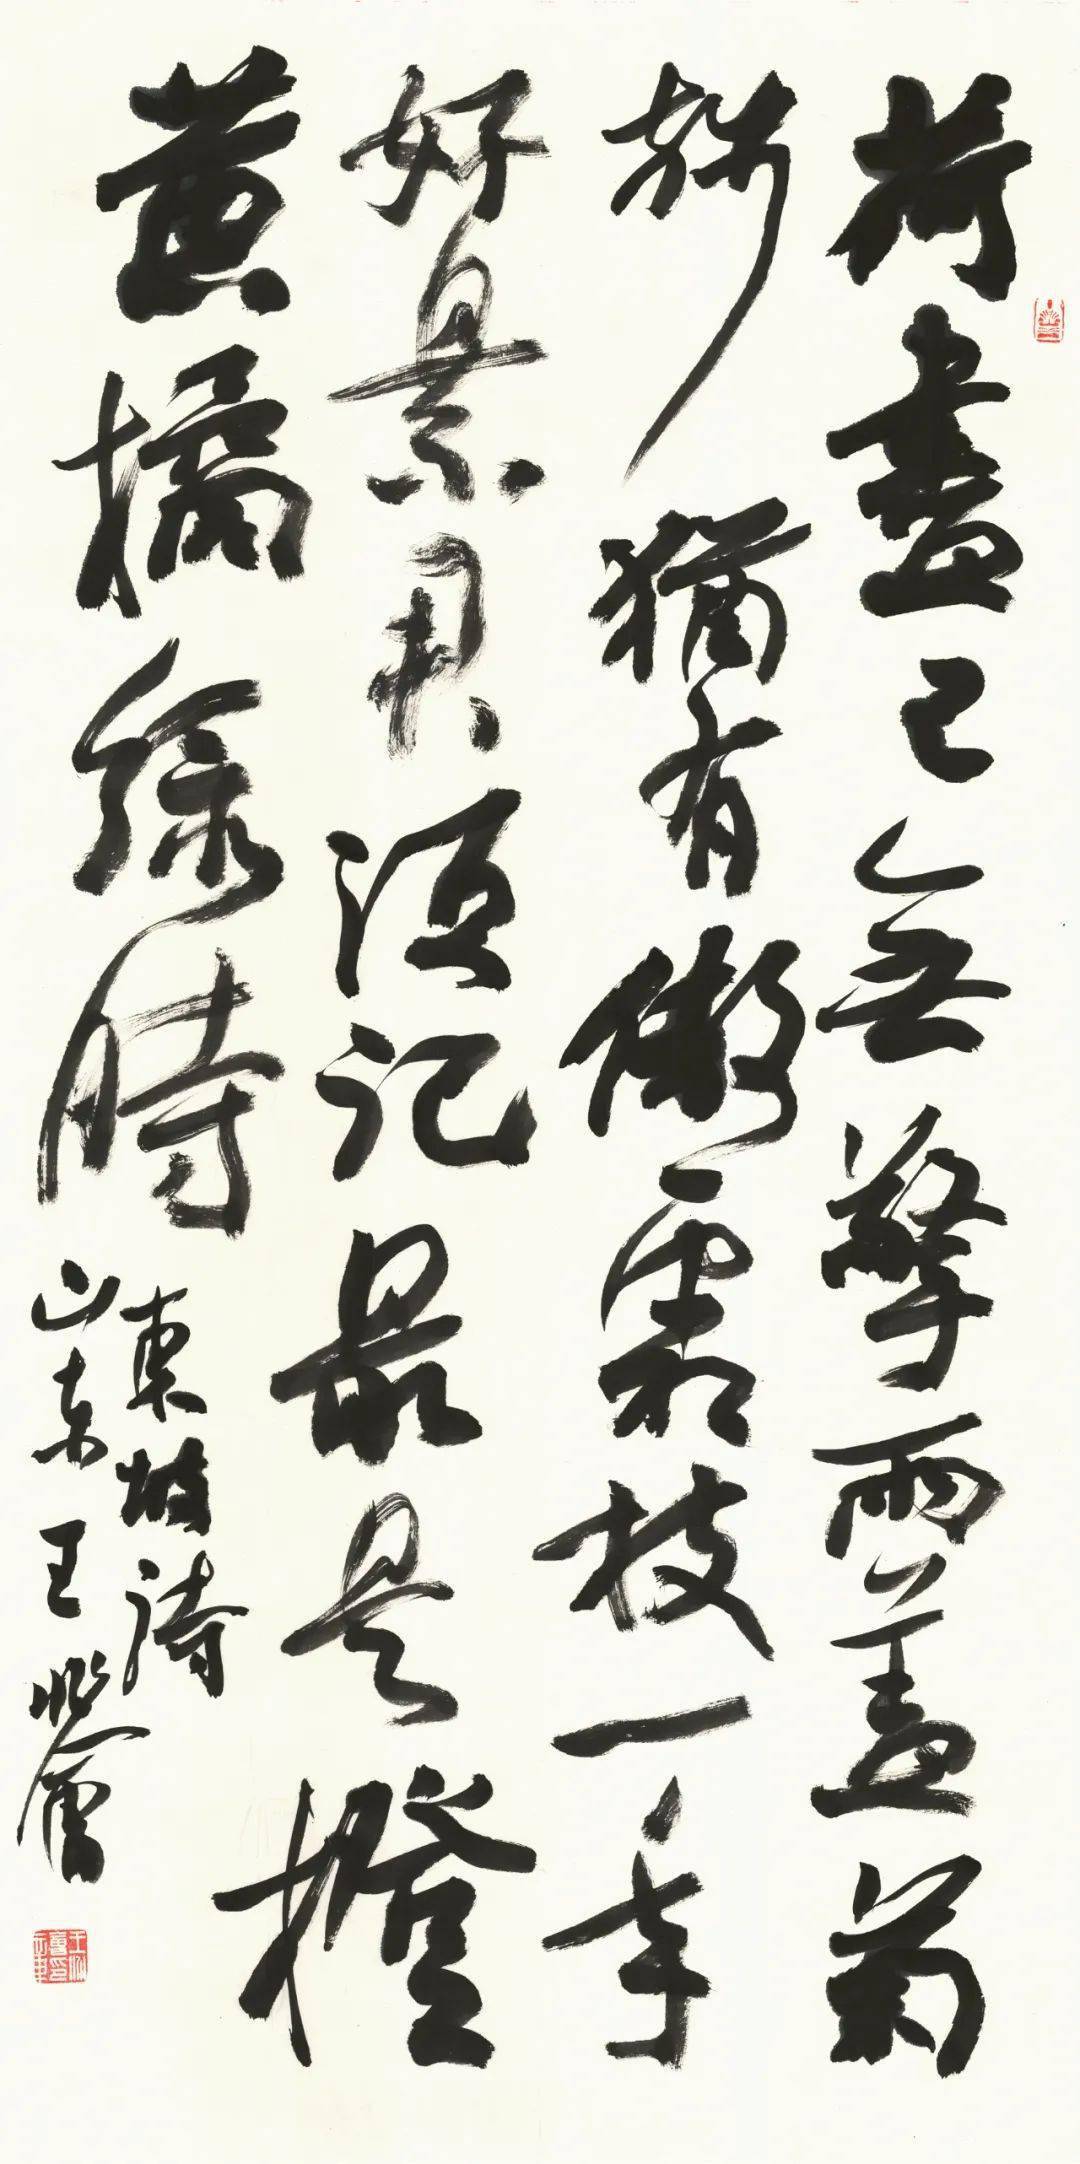 荷盡已無擎雨盖菊
殘猶有傲霜枝一年
好景君須記最是橙
黄橘綠時 東坡詩
山东王